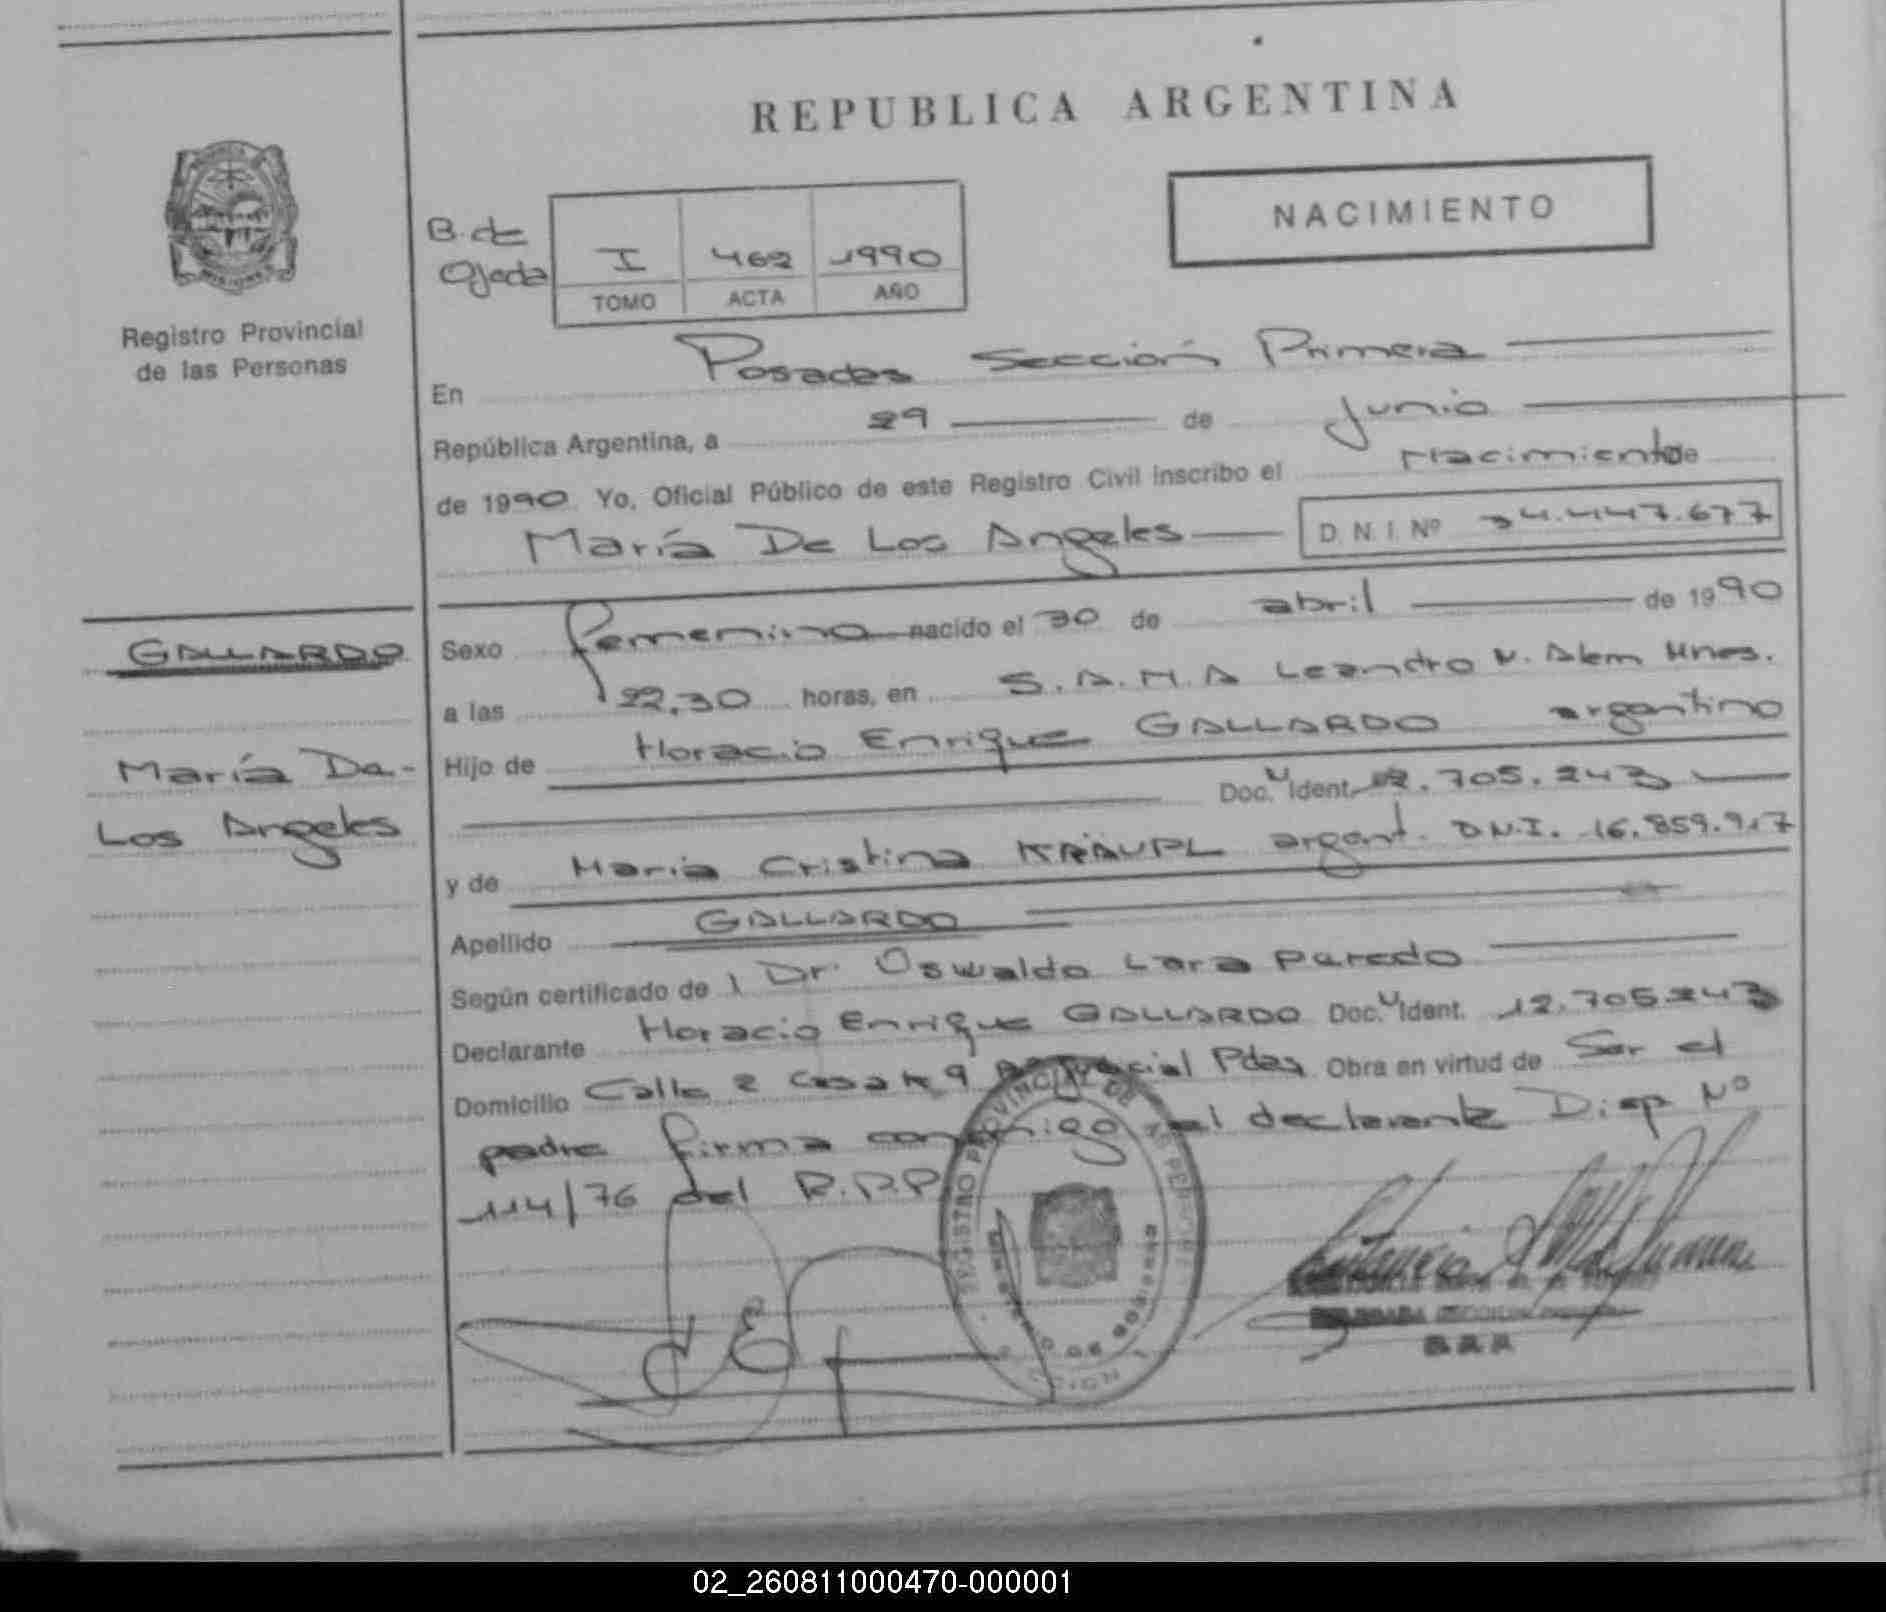 REPUBLICA ARGENTINA
NACIMIENTO
B. de Ojeda
I 462 1990
TOMO ACTA AÑO
Registro Provincial
de las Personas
En Posadas Sección Primera
República Argentina, a 29 de Junio
de 1990 Yo, Oficial Público de este Registro Civil inscribo el Nacimiento de
María De Los Angeles D. N. I. Nº 34.447.677
GALLARDO
María De-
Los Angeles
Sexo femenino nacido el 30 de abril de 1990
a las 22,30 horas, en S.A.M.A Leandro N. Alem Mnes.
Hijo de Horacio Enrique GALLARDO argentino
Doc. Ident. 12.705.243
y de María Cristina KRAUPL argent. D.N.I. 16.859.917
Apellido GALLARDO
Según certificado de l Dr. Oswaldo Lara Paredo
Declarante Horacio Enrique GALLARDO Doc. Ident. 12.705.243
Domicilio Calle 2 Casa 9 Pdas Obra en virtud de Ser el
padre firma conmigo el declarante Disp Nº
114/76 del R.P.P
REGISTRO PROVINCIAL DE
02_260811000470-000001